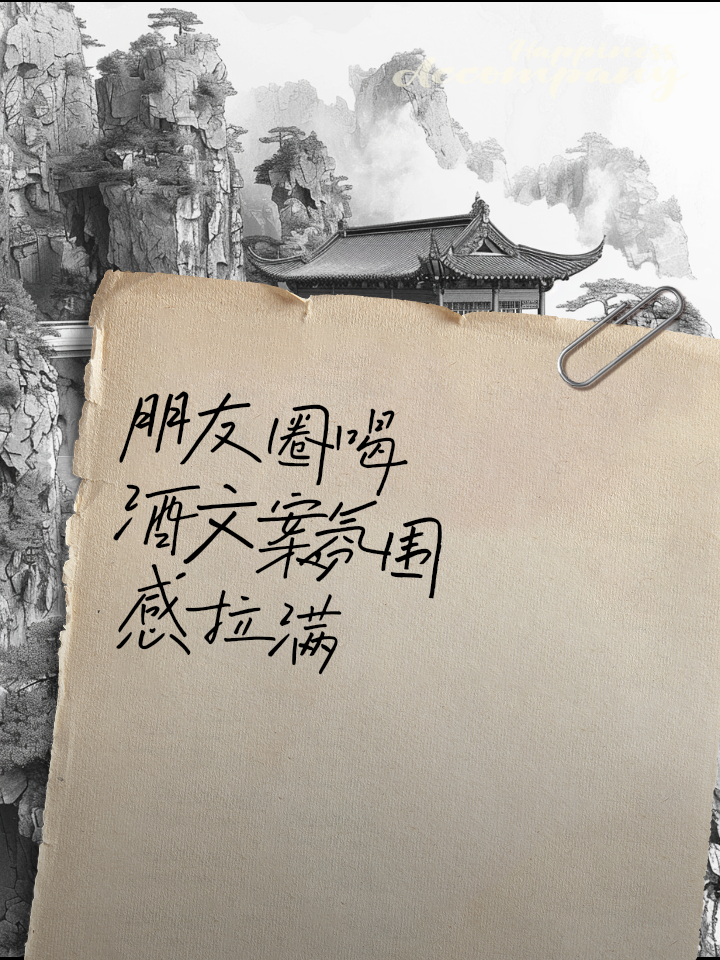 Happiness
Accompany
朋友圈喝
酒文案氛围
感拉满